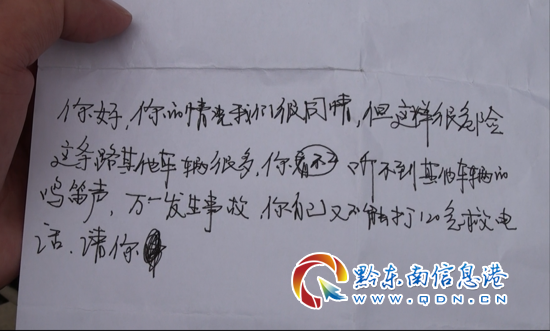 你好,你的情况我们很同情,但这样很危险
这条路其他车辆很多,你看不 听不到其他车辆的
鸣笛声,万一发生事故 你自己又不能打120急救电
话.请你
黔东南信息港
www.QDN.CN